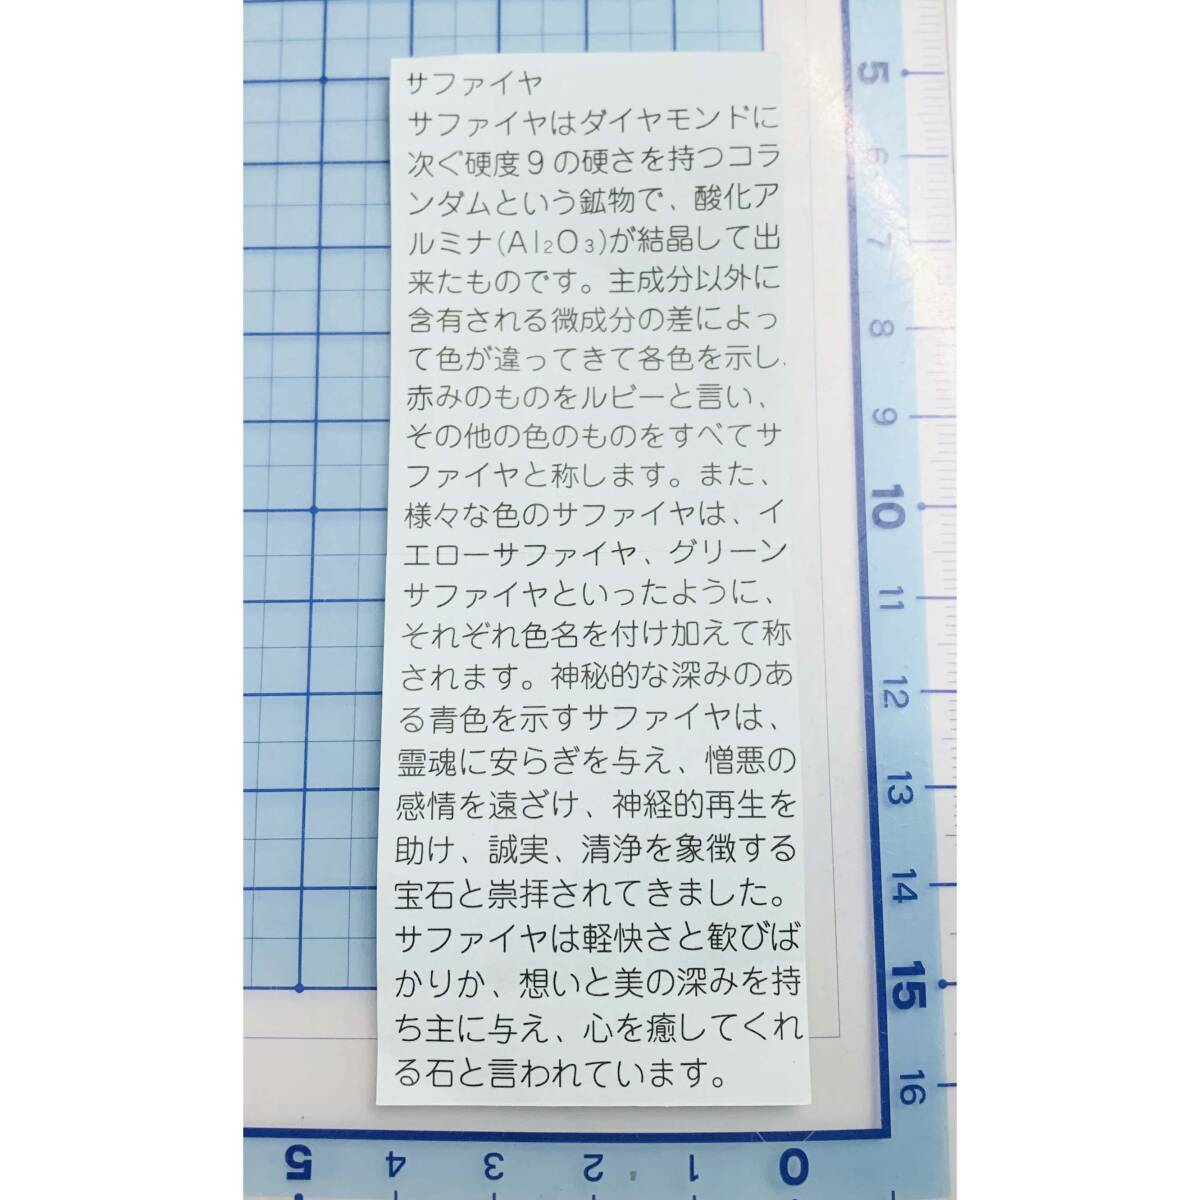 サファイヤ
サファイヤはダイヤモンドに
次ぐ硬度9の硬さを持つコラ
ンダムという鉱物で、酸化ア
ルミナ(Al₂O₃)が結晶して出
来たものです。主成分以外に
含有される微成分の差によっ
て色が違ってきて各色を示し、
赤みのものをルビーと言い、
その他の色のものをすべてサ
ファイヤと称します。また、
様々な色のサファイヤは、イ
エローサファイヤ、グリーン
サファイヤといったように、
それぞれ色名を付け加えて称
されます。神秘的な深みのあ
る青色を示すサファイヤは、
霊魂に安らぎを与え、憎悪の
感情を遠ざけ、神経的再生を
助け、誠実、清浄を象徴する
宝石と崇拝されてきました。
サファイヤは軽快さと歓びば
かりか、想いと美の深みを持
ち主に与え、心を癒してくれ
る石と言われています。
5
6
7
8
9
10
11
12
13
14
15
16
5 4 3 2 1 0